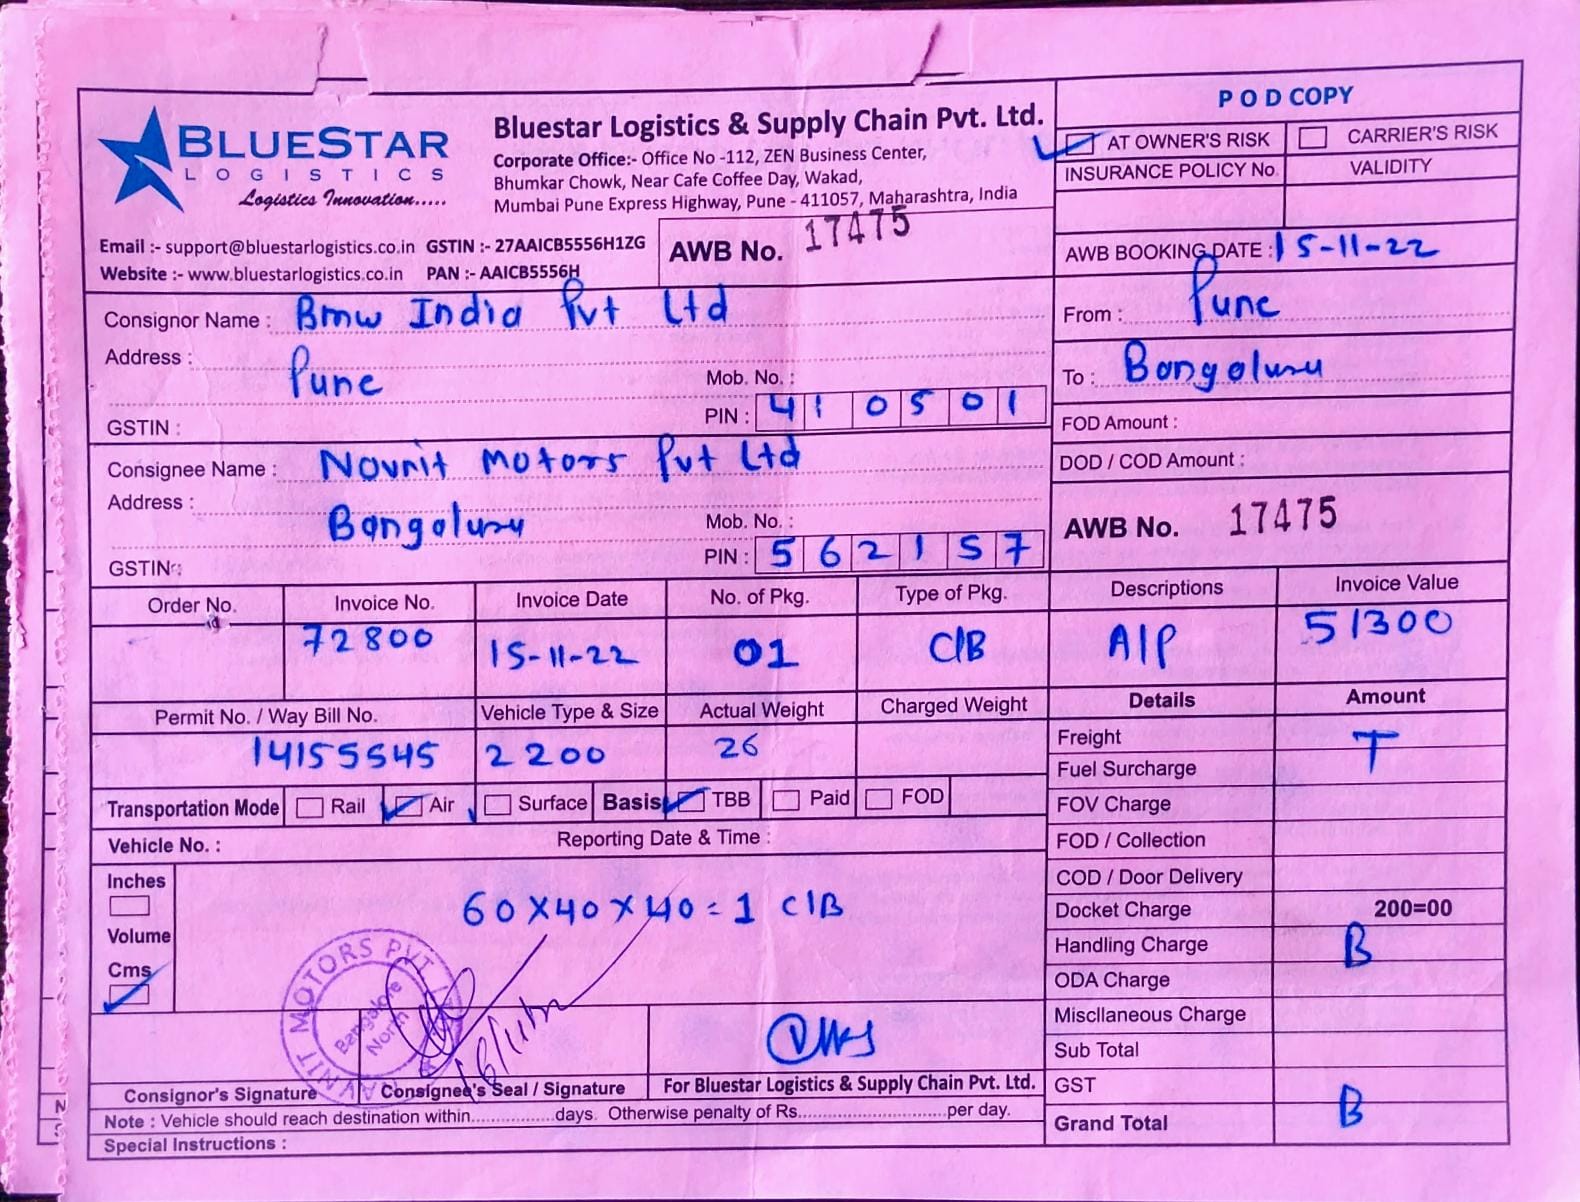 POD COPY
BLUESTAR
LOGISTICS
Logistics Innovation.....
Bluestar Logistics & Supply Chain Pvt. Ltd.
Corporate Office:- Office No -112, ZEN Business Center,
Bhumkar Chowk, Near Cafe Coffee Day, Wakad,
Mumbai Pune Express Highway, Pune - 411057, Maharashtra, India
AT OWNER'S RISK CARRIER'S RISK
INSURANCE POLICY No. VALIDITY
Email :- support@bluestarlogistics.co.in GSTIN :- 27AAICB5556H1ZG
Website :- www.bluestarlogistics.co.in PAN :- AAICB5556H
AWB No. 17475
AWB BOOKING DATE : 15-11-22
Consignor Name : Bmw India Pvt Ltd
Address : Pune
Mob. No. :
PIN : 410501
GSTIN :
From : Pune
To : Bangaluru
FOD Amount :
DOD / COD Amount :
Consignee Name : Navnit Motors Pvt Ltd
Address : Bangaluru
Mob. No. :
PIN : 562157
GSTIN :
AWB No. 17475
Order No. Invoice No. Invoice Date No. of Pkg. Type of Pkg. Descriptions Invoice Value
72800 15-11-22 01 C/B A/P 51300
Permit No. / Way Bill No. Vehicle Type & Size Actual Weight Charged Weight
14155545 2200 26
Transportation Mode Rail Air Surface Basis TBB Paid FOD
Vehicle No. : Reporting Date & Time :
Inches
Volume
Cms
60X40X40=1 C/B
Details Amount
Freight T
Fuel Surcharge
FOV Charge
FOD / Collection
COD / Door Delivery
Docket Charge 200=00
Handling Charge B
ODA Charge
Miscllaneous Charge
Sub Total
GST
Grand Total B
NAVNIT MOTORS PVT
Bangalore
North
Consignor's Signature Consignee's Seal / Signature For Bluestar Logistics & Supply Chain Pvt. Ltd.
Note : Vehicle should reach destination within..................days. Otherwise penalty of Rs................................per day.
Special Instructions :